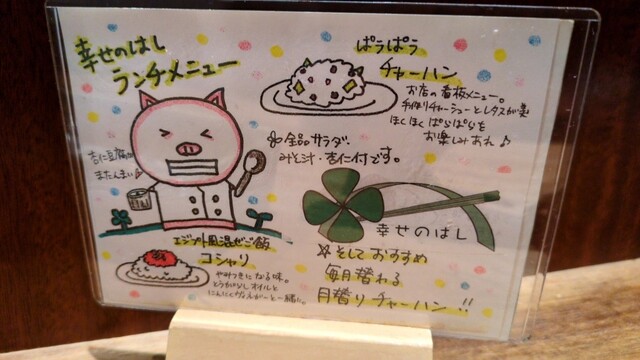 幸せのはし
ランチメニュー
ぱらぱら
チャーハン
お店の看板メニュー。
手作りチャーシューとレタスが
ほくほくぱらぱらを
お楽しみあれ♪
全品サラダ
みそ汁・杏仁付です。
杏仁豆腐が
またんまい♪
幸せのはし
エジプト風混ぜご飯
コシャリ
やみつきになる味。
とうがらしオイルと
にんにくびねがーと一緒に。
そしておすすめ
毎月替わる
月替りチャーハン!!